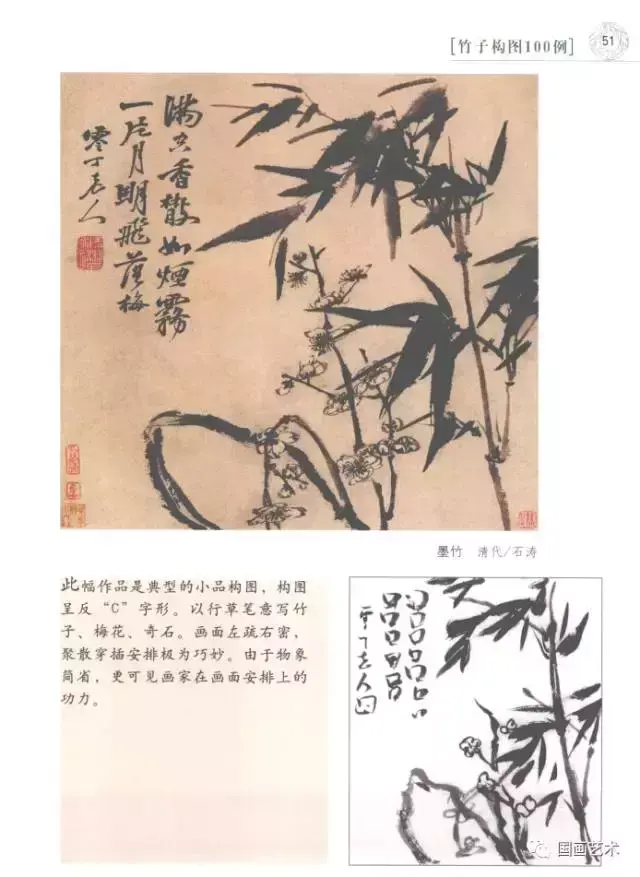 [竹子构图100例]
51
满空香散如烟雾
一片月明飞落梅
零丁老人
墨竹 清代/石涛
此幅作品是典型的小品构图，构图
呈反“C”字形。以行草笔意写竹
子、梅花、奇石。画面左疏右密，
聚散穿插安排极为巧妙。由于物象
简省，更可见画家在画面安排上的
功力。
零丁老人
国画艺术